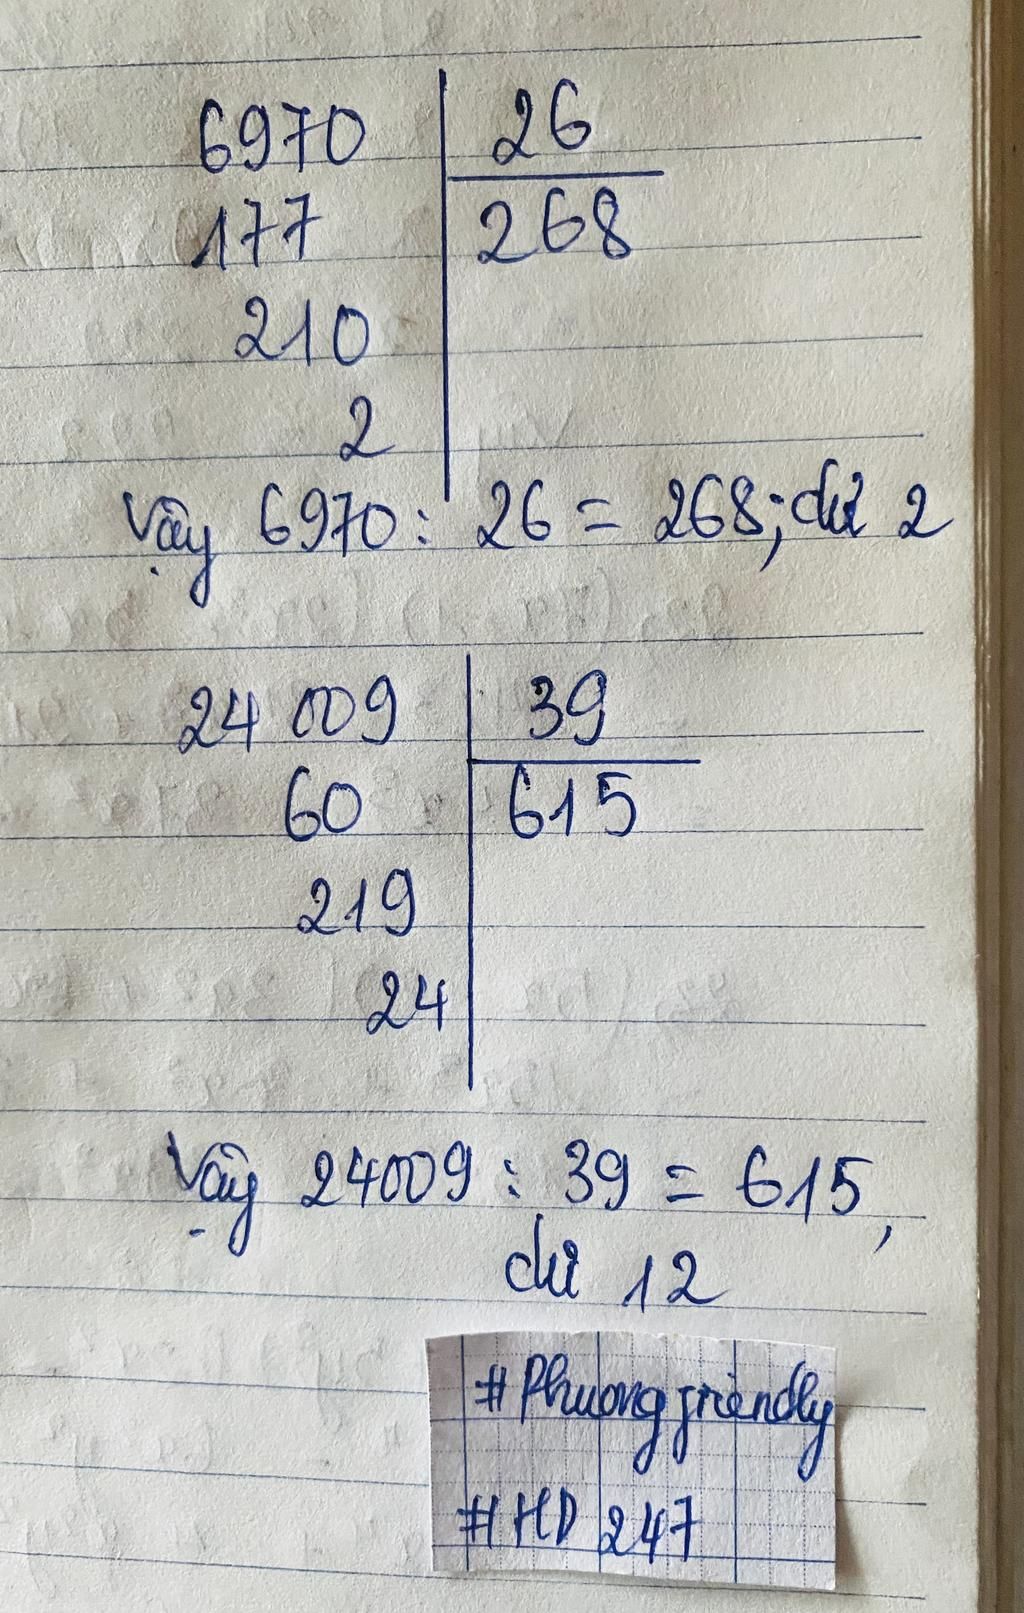 6970 26
177 268
210
2
Vậy 6970 : 26 = 268; dư 2
24 009 39
60 615
219
24
Vậy 24009 : 39 = 615,
dư 12
#Phuong friendly
#HD 247